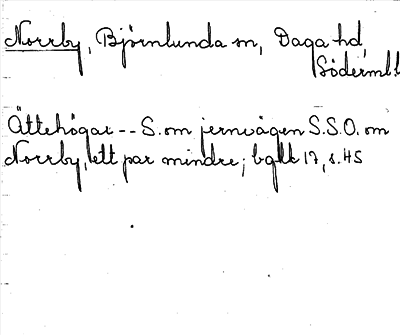 Norrby, Björnlunda sn, Daga hd,
Söderml.l
Ättehögar -- S. om jernvägen S.S.O. om
Norrby, ett par mindre; bgtk 17, s. 45